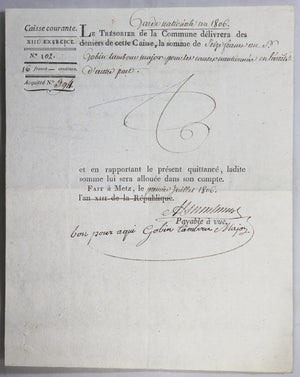 Garde nationale an 1806.
Caisse courante.
XIIIe EXERCICE.
No. 102.
16 francs centimes.
Acquitté No.
LE TRÉSORIER de la Commune délivrera des
deniers de cette Caisse, la somme de Seize francs au Sr.
Gobin tambour major pour les causes mentionnées en
d'autre part.
et en rapportant le présent quittancé, ladite
somme lui sera allouée dans son compte.
FAIT à Metz, le premier Juillet 1806.
l'an XIII de la République.
Payable à vue,
bon pour aqui Gobin tambour Major